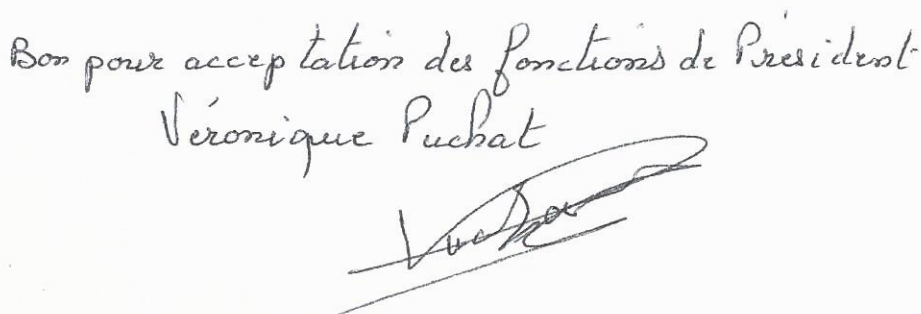 Bon pour acceptation des fonctions de Président
Véronique Puchat